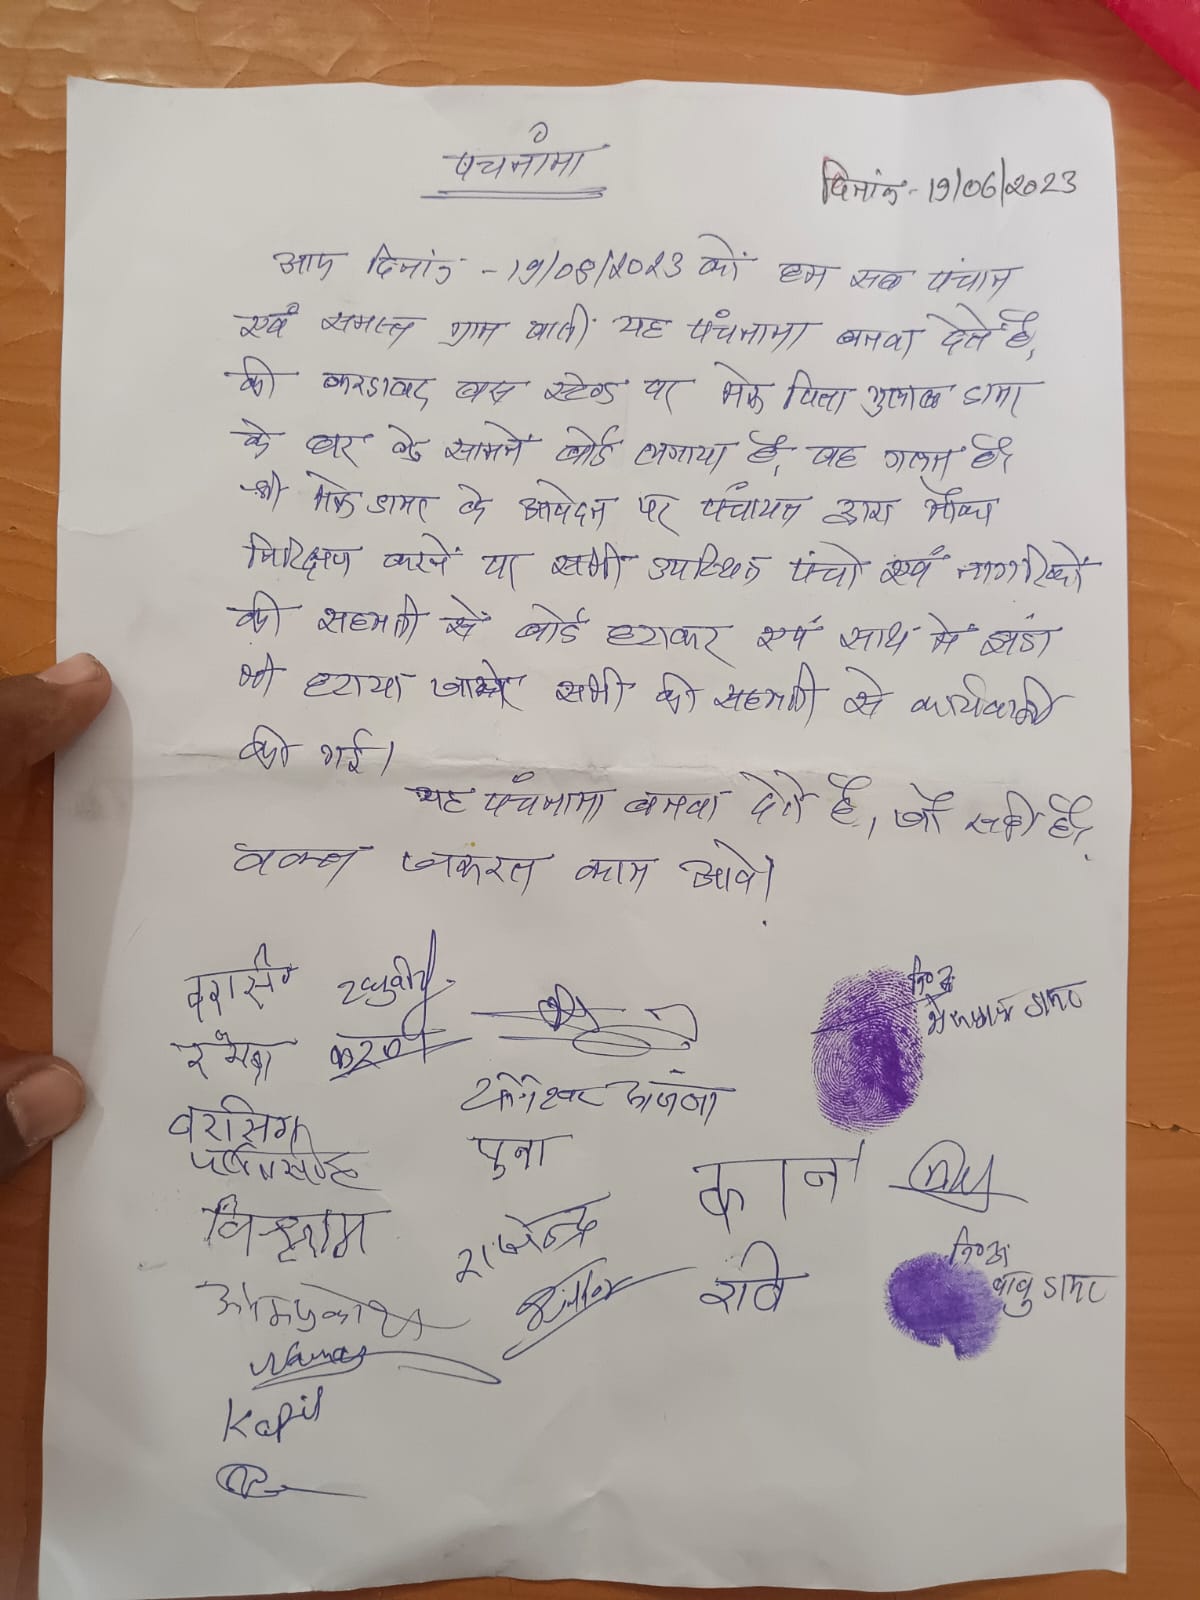 पंचनामा
दिनांक - 19/06/2023
आज दिनांक - 19/06/2023 को हम सब पंचान
एवं समस्त ग्राम वासी यह पंचनामा बनवा देते है,
की करडावद बस स्टेण्ड पर भेरू पिता गुलाब डामर
के घर के सामने बोर्ड लगाया है, वह गलत है।
श्री भेरू डामर के आवेदन पर पंचायत द्वारा मौका
निरिक्षण करने पर सभी उपस्थित पंचो एवं नागरिकों
की सहमती से बोर्ड हटाकर एवं साथ में झंडा
भी हटाया जाकर सभी की सहमती से कार्यवाही
की गई।
यह पंचनामा बनवा देते है, जो सही है।
वक्त जरूरत काम आवे।
रघुवीर
करण
नि०अ
डामर
वरसिंग
पुना
काना
विश्राम
राजेन्द्र
रवि
नि०अ
बाबु डामर
ओमप्रकाश
Kapil